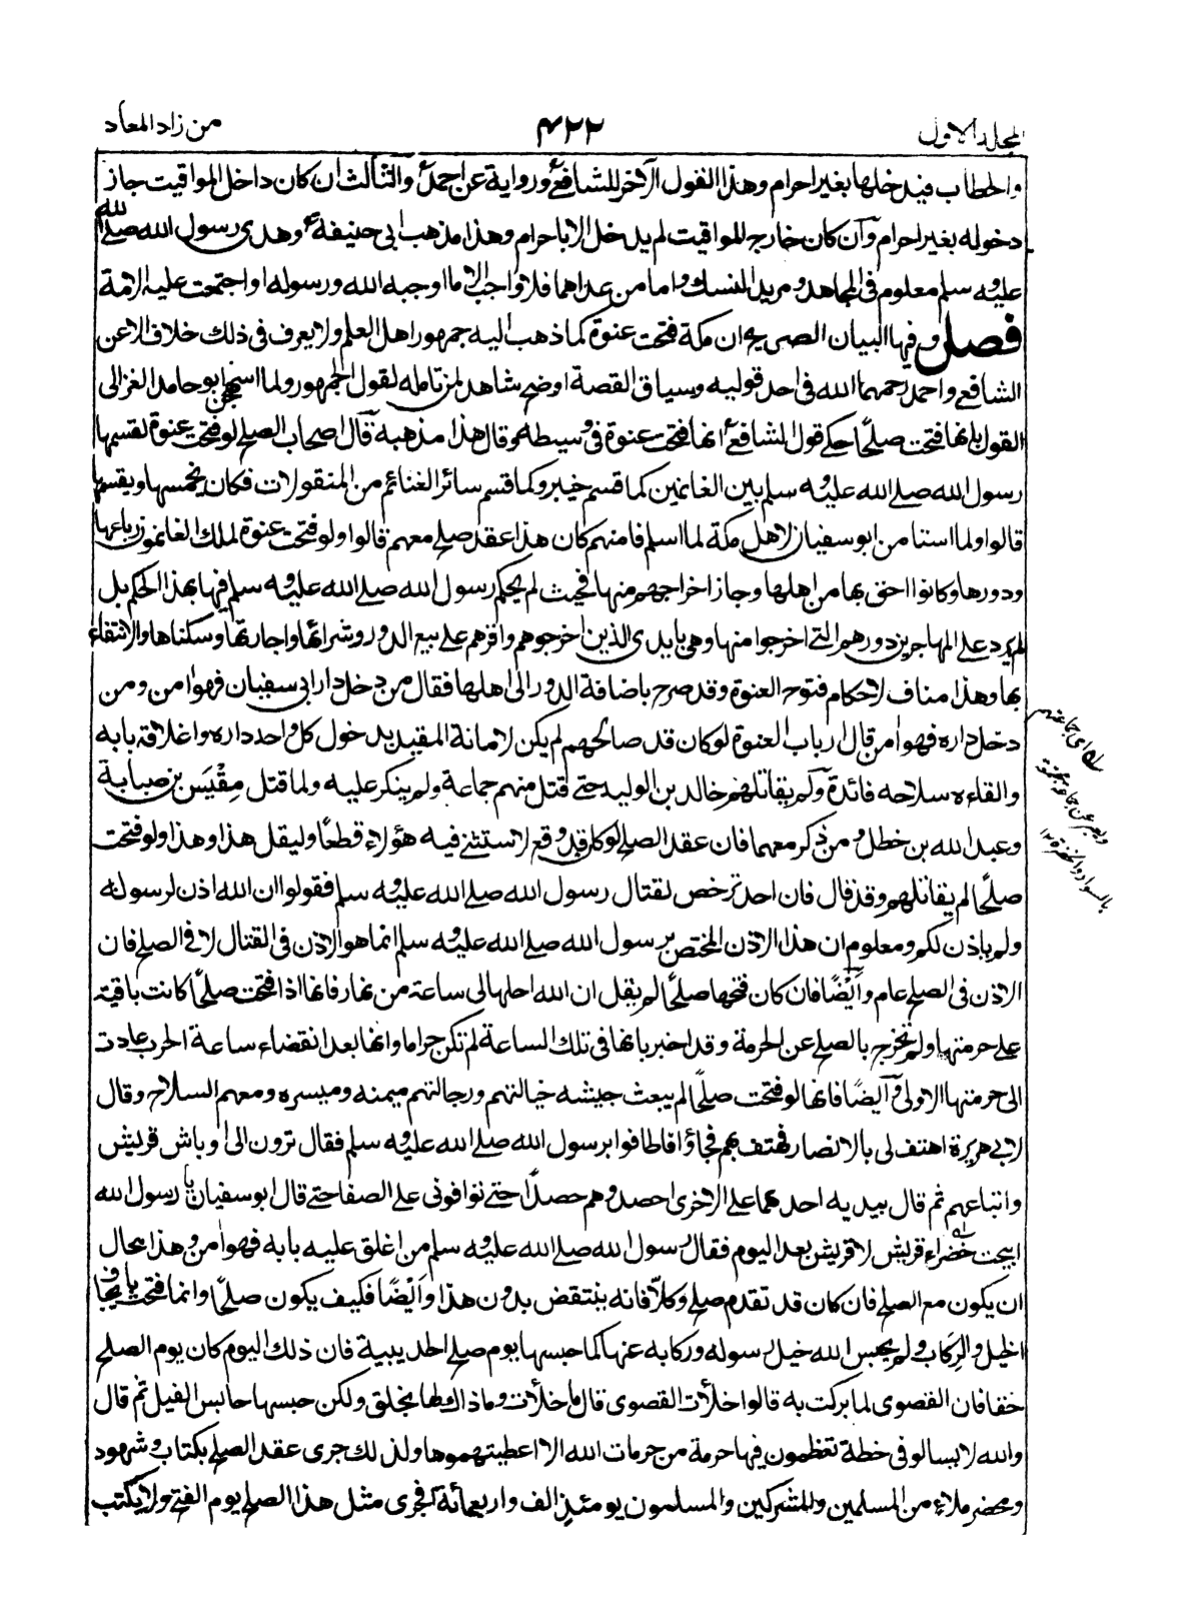 المجلد الاول
۴۲۲
من زاد المعاد
والحطاب فيدخلها بغير احرام وهذا القول الآخر للشافعي ورواية عن احمد والثالث ان كان داخل المواقيت جاز
دخوله بغير احرام وآن كان خارج المواقيت لم يدخل الا باحرام وهذا مذهب ابي حنيفة وهدى رسول الله صلى الله
عليه وسلم معلوم في المجاهد ومريد النسك واما من عداهما فلا واجب الا ما اوجبه الله ورسوله او اجتمعت عليه الامة
فصل وفيها البيان الصريح ان مكة فتحت عنوة كما ذهب اليه جمهور اهل العلم ولا يعرف في ذلك خلاف الا عن
الشافعي واحمد رحمهما الله في احد قوليه وسياق القصة اوضح شاهد لمن تامله لقول الجمهور ولما استهجن ابو حامد الغزالى
القول بانها فتحت صلحًا حكى قول الشافعي انها فتحت عنوة في وسيطه وقال هذا مذهبه قال اصحاب الصلح لو فتحت عنوة لقسمها
رسول الله صلى الله عليه وسلم بين الغانمين كما قسم خيبر وكما قسم سائر الغنائم من المنقولات فكان يخمسها ويقسمها
قالوا ولما استنا من ابو سفيان لاهل مكة لما اسلم فامنهم كان هذا عقد صلح معهم قالوا ولو فتحت عنوة لملك الغانمون رباعها
ودورها وكانوا احق بها من اهلها وجاز اخراجهم منها فحيث لم يحكم رسول الله صلى الله عليه وسلم فيها بهذا الحكم بل
لم يرد على المهاجرين دورهم التي اخرجوا منها وهي بايدى الذين اخرجوهم واقرهم على بيع الدور وشرائها واجارتها وسكناها والانتفاء
بها وهذا مناف لاحكام فتوح العنوة وقد صرح باضافة الدور الى اهلها فقال من دخل دار ابي سفيان فهو امن ومن
دخل داره فهو امن قال ارباب العنوة لو كان قد صالحهم لم يكن لامانة المقيد بدخول كل واحد داره واغلاقه بابه
والقاءه سلاحه فائدة ولم يقاتلهم خالد بن الوليد حتى قتل منهم جماعة ولم ينكر عليه ولما قتل مِقْيَس بن صبابة
وعبد الله بن خطل ومن ذكر معهما فان عقد الصلح لو كان قد وقع لاستثنى فيه هؤلاء قطعًا وليقل هذا وهذا ولو فتحت
صلحًا لم يقاتلهم وقد قال فان احد ترخص لقتال رسول الله صلى الله عليه وسلم فقولوا ان الله اذن لرسوله
ولم ياذن لكم ومعلوم ان هذا الاذن المختص برسول الله صلى الله عليه وسلم انما هو الاذن في القتال لا في الصلح فان
الاذن في الصلح عام وأيْضًا فان كان فتحها صلحًا لم يقل ان الله احلها لى ساعة من نهار فانها اذا فتحت صلحًا كانت باقية
على حرمتها ولم تخرج بالصلح عن الحرمة وقد اخبر بانها في تلك الساعة لم تكن حراما وانها بعد انقضاء ساعة الحرب عادت
الى حرمتها الاولى وآيضًا فانها لو فتحت صلحًا لم يبعث جيشه خيالتهم ورجالتهم ميمنه وميسره ومعهم السلاح وقال
لابي هريرة اهتف لى بالانصار فهتف بهم فجاؤا فاطافوا برسول الله صلى الله عليه وسلم فقال ترون الى اوباش قريش
واتباعهم ثم قال بيديه احدهما على الاخرى احصدوهم حصدًا حتى توافونى على الصفا حتى قال ابو سفيان يا رسول الله
ابيحت خضراء قريش لا قريش بعد اليوم فقال رسول الله صلى الله عليه وسلم من اغلق عليه بابه فهو امن وهذا محال
ان يكون مع الصلح فان كان قد تقدم صلح وكلّا فانه ينتقض بدون هذا وأيْضًا فكيف يكون صلحًا وانما فتحت بايجاف
الخيل والرِكاب ولم يحبس الله خيل رسوله وركابه عنها كما حبسها يوم صلح الحديبية فان ذلك اليوم كان يوم الصلح
حقا فان القصوى لما بركت به قالوا خلأت القصوى قال ما خلأت وما ذاك لها بخلق ولكن حبسها حابس الفيل ثم قال
والله لا يسالونى خطة تعظمون فيها حرمة من حرمات الله الا اعطيتهموها ولذلك جرى عقد الصلح بكتاب وشهود
ومحضر ملاء من المسلمين والمشركين والمسلمون يومئذٍ الف واربعمائة آفجرى مثل هذا الصلح يوم الفتح ولا يكتب
اى جماعتهم
ويعبر عن جماعة مجتمعة
بالسواد والخضرة ١٢